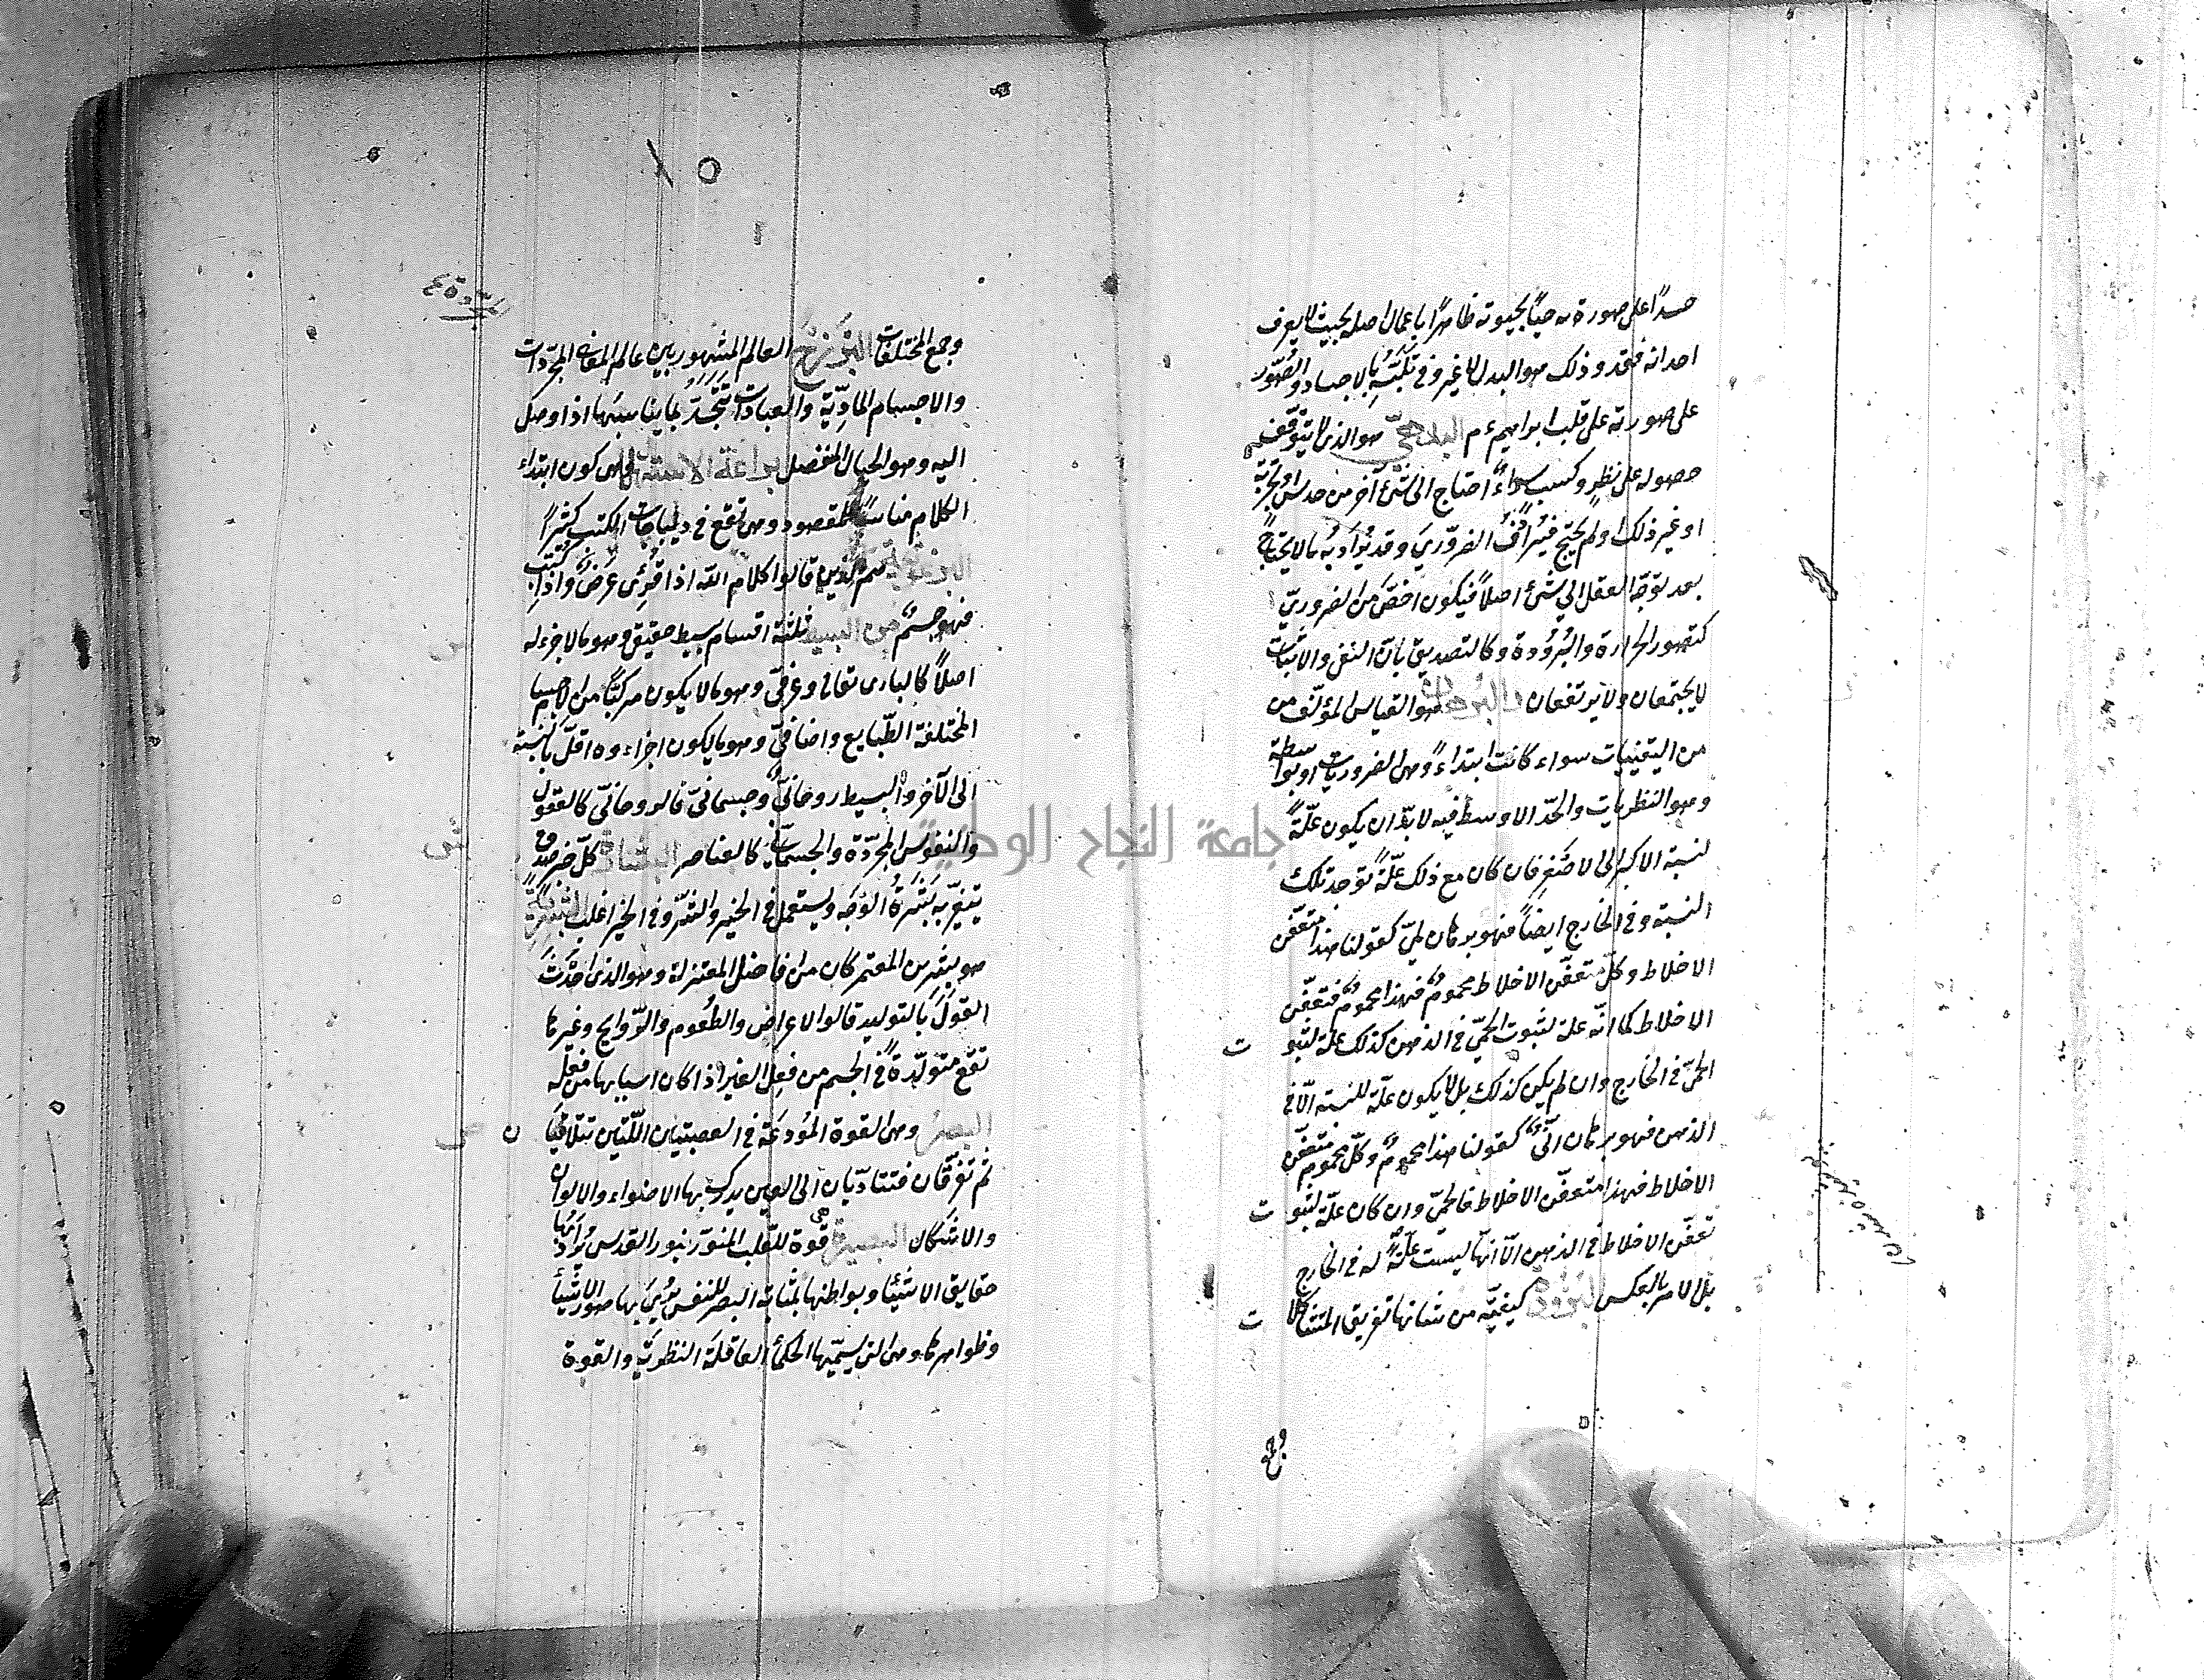 جسدًا على صورته حيًّا بحيوته ظاهرًا باعمال اصله بحيث لا يعرف
احد انه فقد وذلك هو البدل لا غير وفى تلبّسه بالاجساد والصُّوَر
على صورته على قلب ابراهيم ع م البديهىّ هو الذى لا يتوقّف
حصوله على نظرٍ وكسبٍ سواءٌ احتاج الى شئ آخر من حدس او تجربة
او غير ذلك او لم يحتج فيُرادف الضروّرى وقد يُراد به ما لا يحتاج
بعد توجّه العقل الى شئ اصلاً فيكون اخصّ من الضرورىّ
كتصور الحرارة والبُرُودة وكالتصديق بانّ النفى والاثبات
لا يجتمعان ولا يرتفعان البرهان هو القياس المؤلّف من
من اليقينيات سواء كانت ابتداءً وهى الضروريات او بواسطة
وهو النظريات والحدّ الاوسط فيه لا بدّ ان يكون علّةً
لنسبة الاكبر الى الاصغر فان كان مع ذلك علّةً لوجود تلك
النسبة وفى الخارج ايضاً فهو برهان لمّىّ كقولنا هذا متعفّن
الاخلاط وكلّ متعفّن الاخلاط محمومٌ فهذا محمومٌ فتعفّن
الاخلاط كما انّه علة لثبوت الحمّى فى الذهن كذلك علّة لثبوت
الحمّى فى الخارج وان لم يكن كذلك بل لا يكون علّة للنسبة الّا فى
الذهن فهو برهان انّىّ كقولنا هذا محمومٌ وكلّ محموم متعفّن
الاخلاط فهذا متعفّن الاخلاط فالحمّى وان كان علّة لثبوت
تعفّن الاخلاط فى الذهن الّا انها ليست علّةً له فى الخارج
بل الامر بالعكس البرودة كيفيّة من شانها تفريق المتشاكلات
وجمع
١٥
وجمع المختلفات البَرْزَخ العالم المشهور بين عالم المعانى المجرّدات
والاجسام المادّيّة والعبادات تتجسّد بما يناسبها اذا وصل
اليه وهو الخيال المنفصل براعة الاستهلال هى كون ابتداء
الكلام مناسبًا للمقصود وهى تقع فى ديباجات الكتب كثيرًا
البرغوثية هم الذين قالوا كلام الله اذا قُرِئ عرضٌ واذا كُتب
فهو جسمٌ البسيط ثلثة اقسام بسيط حقيقى وهو ما لا جزء له
اصلاً كالبارى تعالى وعرفىّ وهو ما لا يكون مركبًّا من الاجسام
المختلفة الطّبايع واضافىّ وهو ما يكون اجزاءوه اقلّ بالنسبة
الى الآخر والبسيط روحانىٌّ وجسمانىّ فالروحانىّ كالعقول
والنفوس المجرّدة والجسمانىّ كالعناصر البشارة كلّ خبر صدق
يتغيّر به بَشَرَةُ الوَجه ويستعمل فى الخير والشّر وفى الخير اغلب البِشْرِيَّةُ
هو بشر بن المعتمر كان من افاضل المعتزلة وهو الذى احْدَثَ
القَوْلَ بالتوليد قالوا الاعراض والطُعوم والرّوايح وغيرها
تقع متولّدةً فى الجسم من فعل الغير اذا كان اسبابها من فعله
البصر وهى القوة المُودَعَة فى العصبتين اللّتين تتلاقيان
ثم تفرّقان فتتادّيان الى العين يدرك بها الاضواء والالوان
والاشكال البصيرة هى قوة للقلب المنوّر بنور القدس يُرَى بها
حقايق الاشيا وبواطنها بمثابة البصر للنفس يُرى بها صور الاشيا
وظواهرها وهى التى يسمّيها الحكمأ العاقلة النظريّة والقوة
جامعة النجاح الوطنية